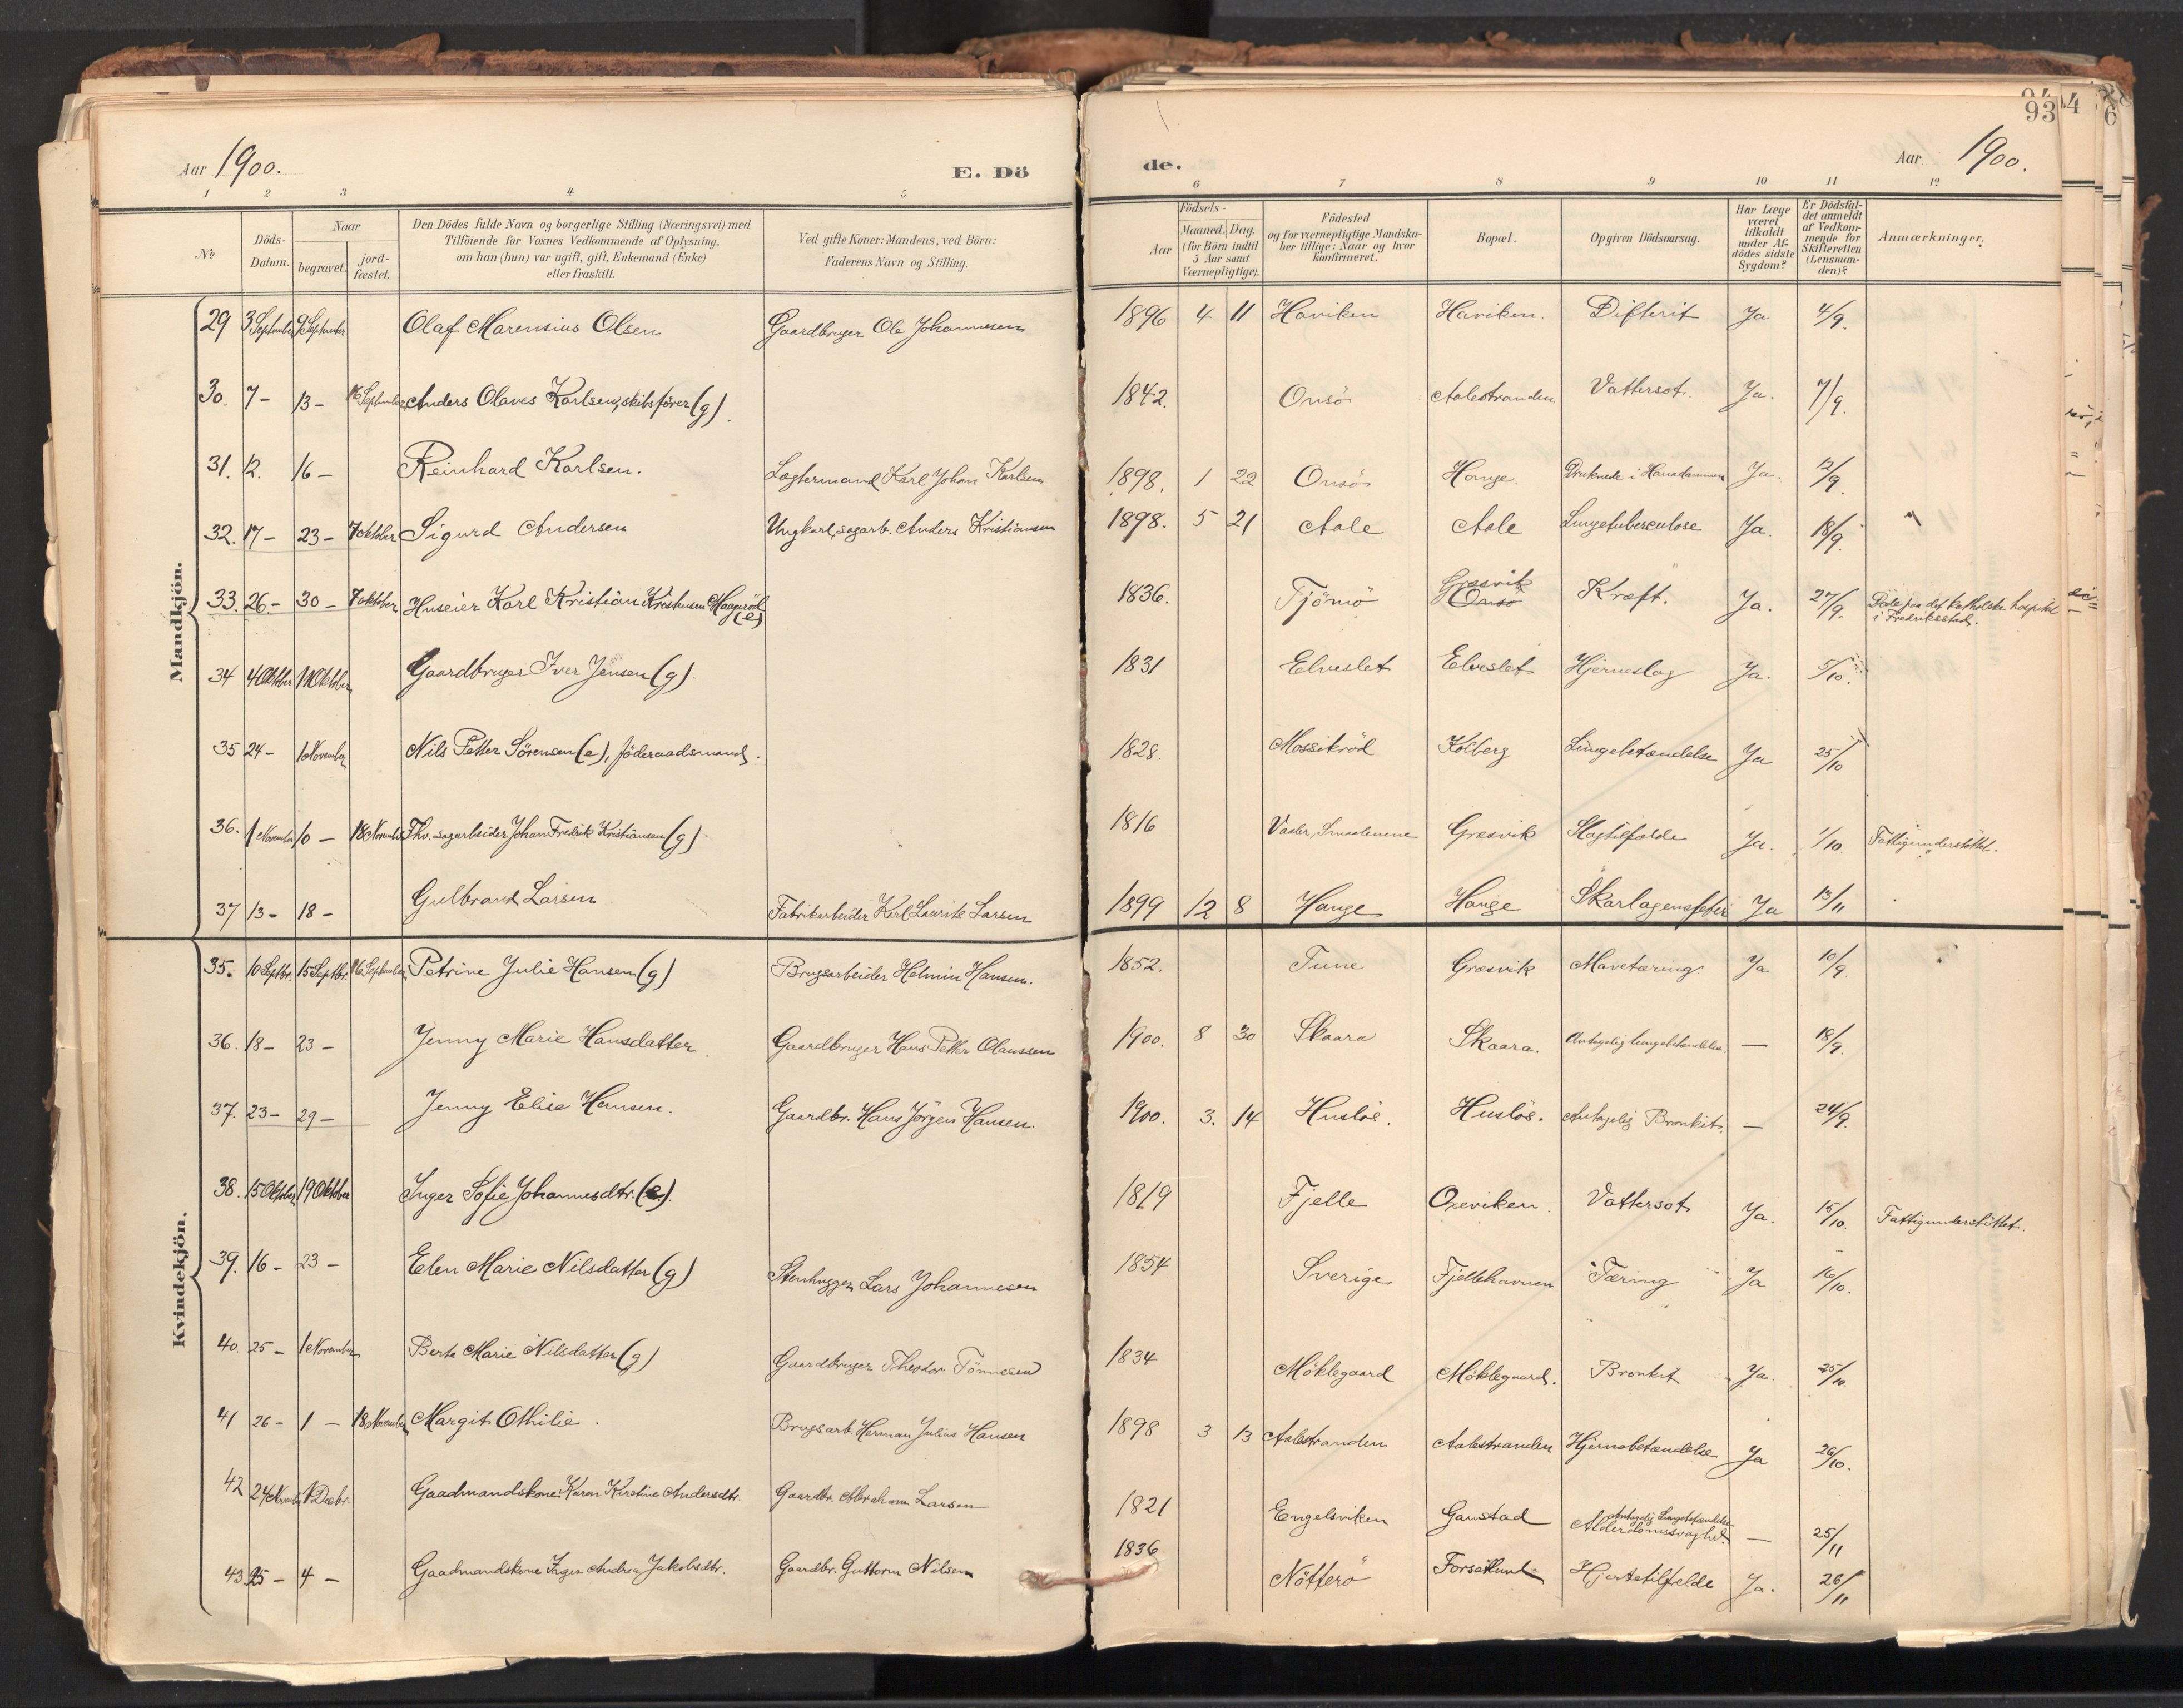 93
4
6
Aar 1900.
E. Dö
de.
Aar 1900.
1 2 3 4 5 6 7 8 9 10 11 12
No
Döds-
Datum.
Naar
begravet.
jord-
fæstet.
Den Dödes fulde Navn og borgerlige Stilling (Næringsvei) med
Tilföiende for Voxnes Vedkommende af Oplysning,
om han (hun) var ugift, gift, Enkemand (Enke)
eller fraskilt.
Ved gifte Koner: Mandens, ved Börn:
Faderens Navn og Stilling.
Födsels-
Aar
Maaned. Dag.
(for Börn indtil
5 Aar samt
Værnepligtige).
Födested
og for værnepligtige Mandska-
ber tillige: Naar og hvor
konfirmeret.
Bopæl.
Opgiven Dödsaarsag.
Har Læge
været
tilkaldt
under Af-
dödes sidste
Sygdom?
Er Dödsfal-
det anmeldt
af Vedkom-
mende for
Skifteretten
(Lensman-
den)?
Anmærkninger.
Mandkjön.
29 3 September 9 September Olaf Marensius Olsen Gaardbruger Ole Johannesen 1896 4 11 Haviken Haviken. Difterit Ja 4/9.
30. 7 - 13 - 16 September Anders Olaves Karlsen, skibsförer (g). 1842. Onsö Aalestranden Vattersot. Ja. 7/9.
31. 12. 16 - Reinhard Karlsen. Lægtermand Karl Johan Karlsen 1898. 1 22 Onsö Hauge. Druknede i Ja. 12/9
32. 17 - 23 - 7 oktober Sigurd Andersen Ungkarl, sagarb. Anders Kristiansen 1898. 5 21 Aale Aale Lungetuberculose Ja. 18/9.
33. 26 - 30 - 7 oktober Huseier Karl Kristian Kristensen Haageröd (e) 1836. Tjömö Græsvik Onsö Kræft. Ja. 27/9. Döde paa det katholske hospital
i Fredriksstad.
34 4 Oktober 11 Oktober Gaardbruger Iver Jensen (g) 1831 Elveslet Elveslet Hjerneslag Ja. 5/10.
35 24 - 1 November Nils Petter Sörensen (e), föderaadsmand. 1828. Mossikröd Kolberg Lungebetændelse Ja 25/10
36. 1 November 10 - 18 November Fhv. sagarbeider Johan Fredrik Kristiansen (g) 1816 Vaaler, Smaalenene Græsvik Slagtilfælde Ja. 1/10. Fattigunderstöttet.
37 13 - 18 - Gulbrand Larsen Fabrikarbeider Karl Laurits Larsen 1899 12 8 Hauge Hauge Skarlagensfeber Ja 13/11
Kvindekjön.
35. 10 Septbr. 15 Septbr. 16 September Petrine Julie Hansen (g) Brugsarbeider Helmin Hansen. 1852. Tune Græsvik Mavetæring. Ja 10/9.
36. 18 - 23 - Jenny Marie Hansdatter. Gaardbruger Hans Petter Olaussen 1900. 8 30 Skaara Skaara. Antagelig lungebetændelse. — 18/9.
37. 23 - 29 - Jenny Elise Hansen. Gaardbr. Hans Jörgen Hansen. 1900. 3. 14 Huslös. Huslös. Antagelig Bronkit. — 24/9.
38. 15 Oktober 19 Oktober Inger Sofie Johannesdtr. (e). 1819 Fjelle Oxeviken. Vattersot Ja. 15/10. Fattigunderstöttet.
39. 16 - 23 - Elen Marie Nilsdatter (g) Stenhugger Lars Johannesen 1854 Sverige Fjellehavnen Tæring Ja 16/10.
40. 25 - 1 November Berte Marie Nilsdatter (g) Gaardbruger Theodor Tönnesen 1834 Möklegaard Möklegaard. Bronkit Ja 25/10.
41 26 - 1 - 18 November Margit Othilie. Brugsarb. Herman Julius Hansen 1898 3 13 Aalestranden Aalestranden Hjernebetændelse Ja 26/10.
42 24 Novemb. 1 Decbr. Gaadmandskone Karen Kirstine Andersdtr. Gaardbr. Abraham Larsen 1821 Engelsviken Gaustad Antagelig Lungebetændelse
Alderdomssvaghed. — 25/11
43 25 - 4 - Gaadmandskone Inger Andrea Jakobsdtr. Gaardbr. Guttorm Nilsen 1836 Nötterö Forsetlund Hjertetilfelde Ja. 26/11